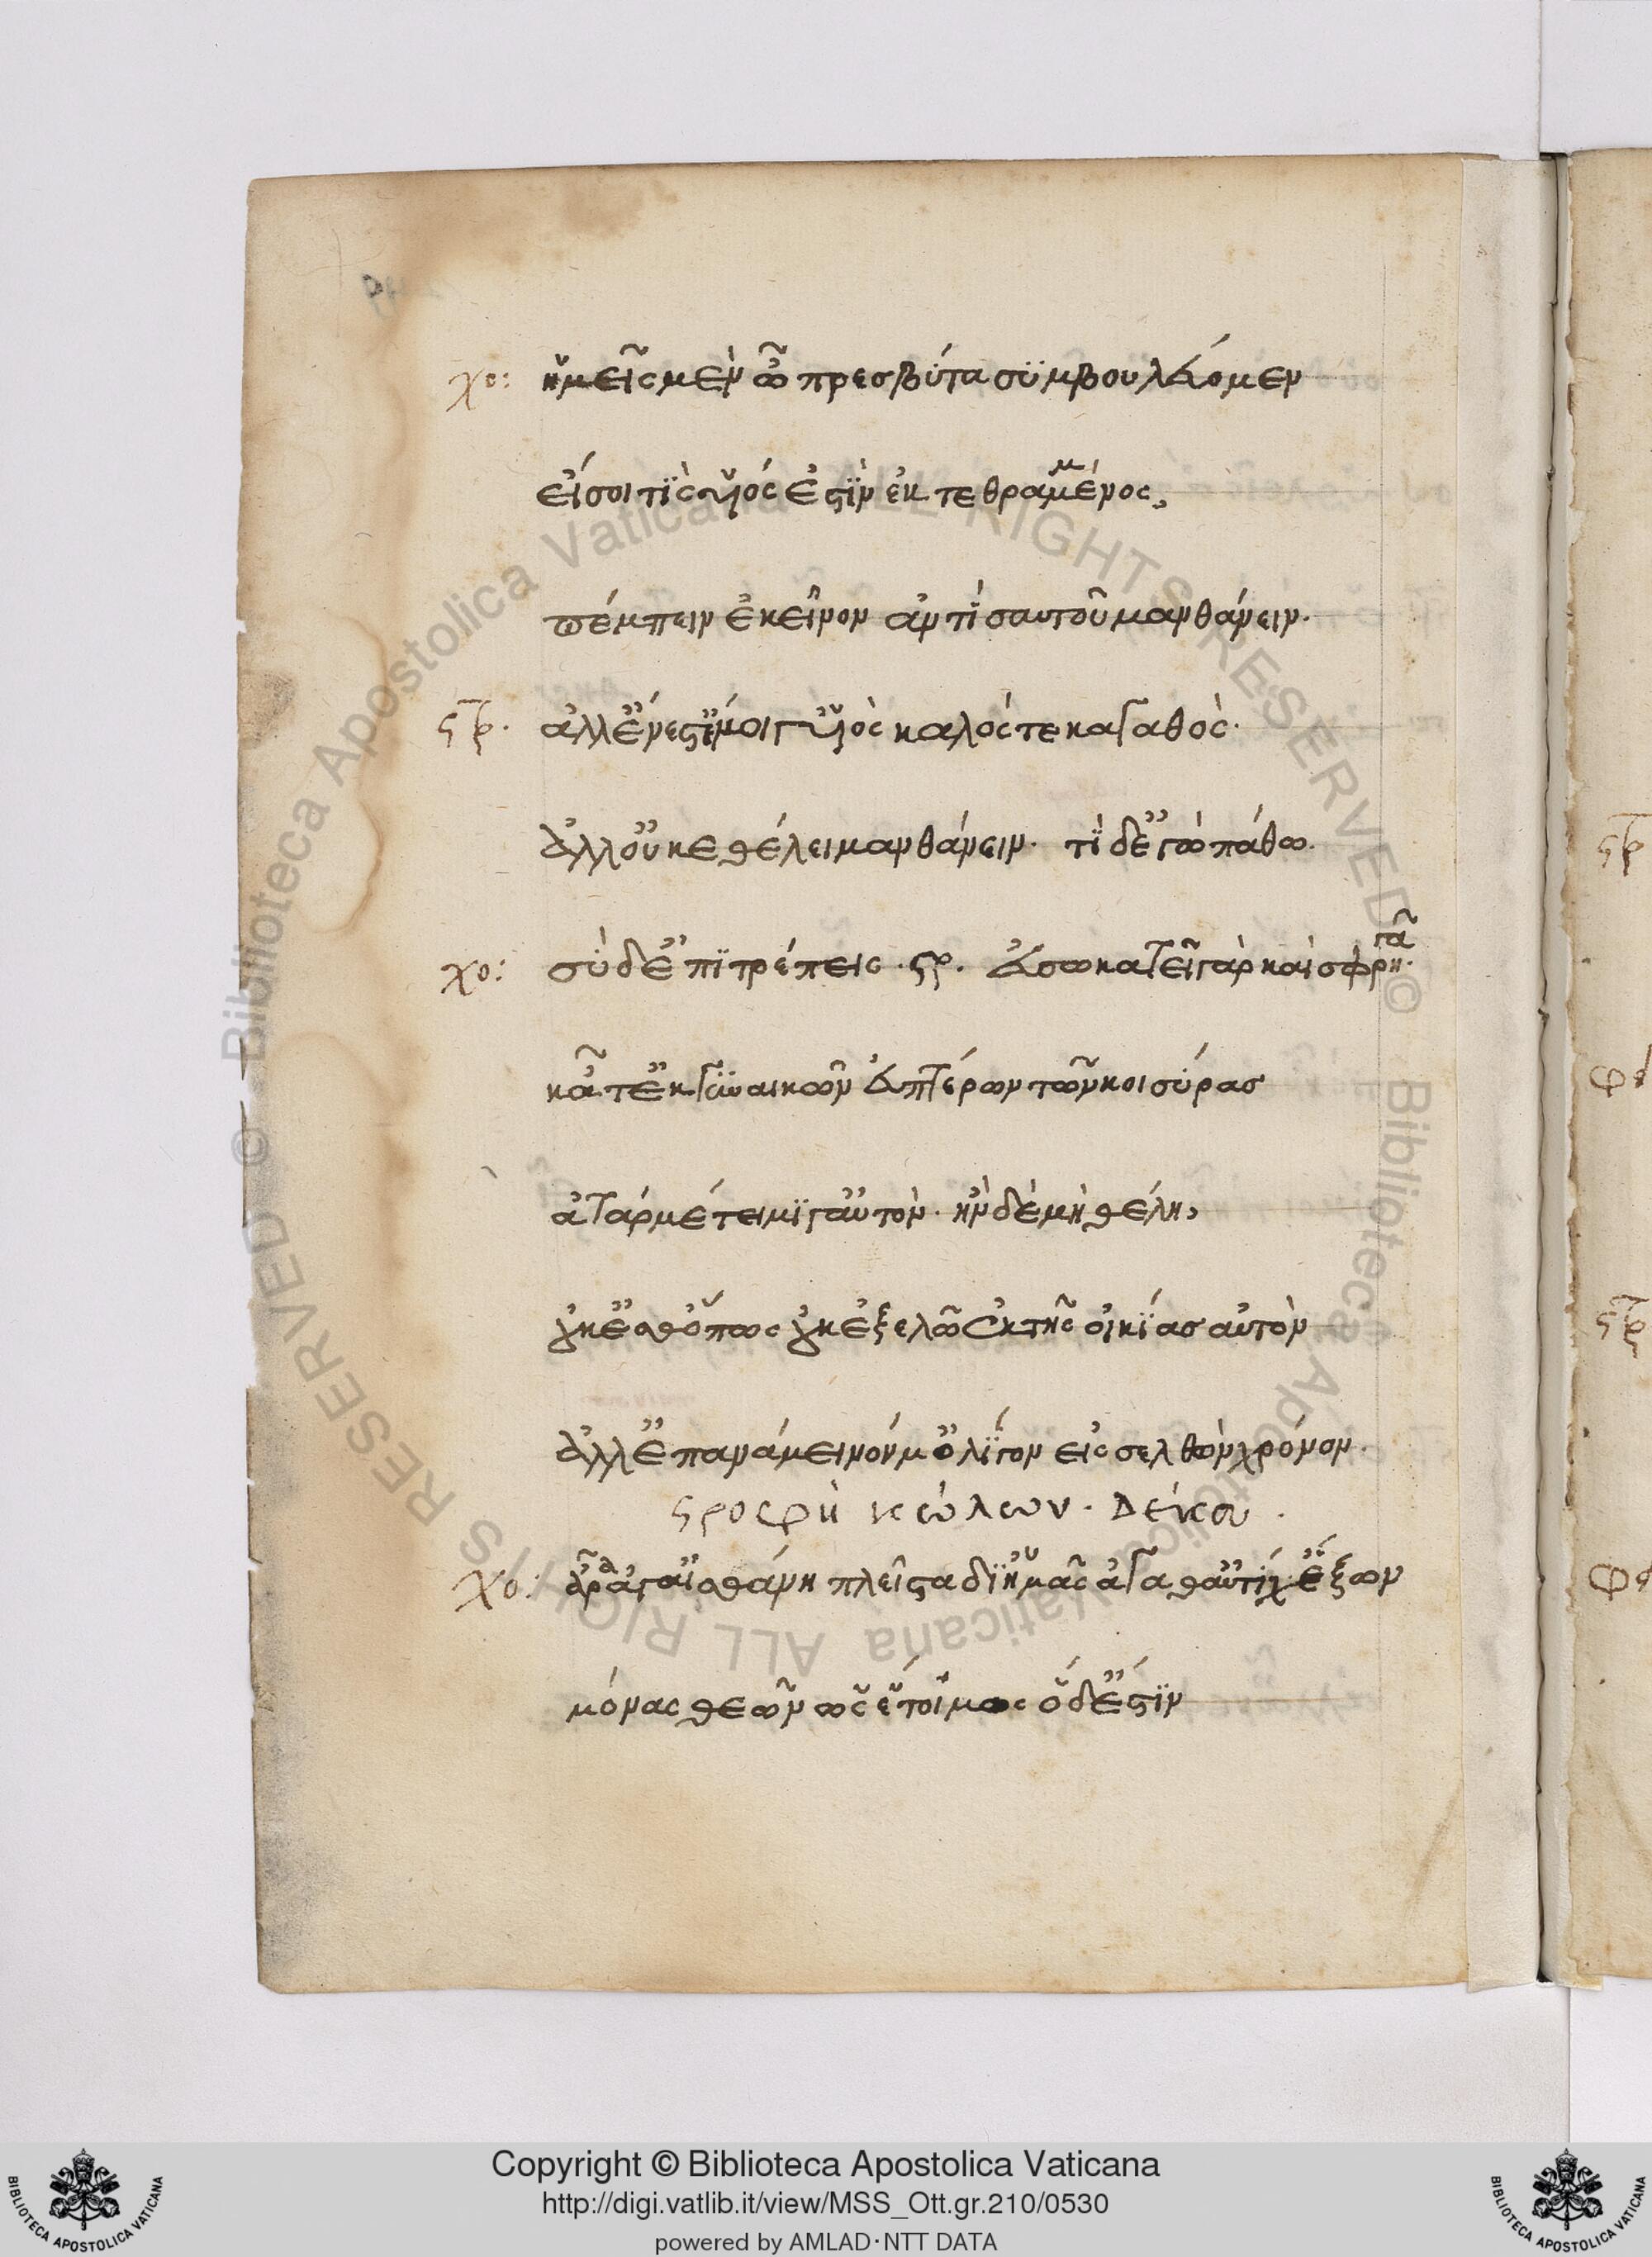 χο: ἡμεῖς μὲν ὦ πρεσβύτα συμβουλεύομεν
εἴ σοι τὶς υἱός ἐστὶν ἐκτεθραμμένος,
πέμπειν ἐκεῖνον ἀντὶ σαυτοῦ μανθάνειν.
στρ. ἀλλ' ἔνεστ' ἔμοιγ' υἱὸς καλός τε κἀγαθὸς.
ἀλλ' οὐκ ἐθέλει μανθάνειν. τί δ' ἐγὼ πάθω.
χο: σὺ δ' ἐπιτρέπεις. στρ. εὐσωματεῖ γὰρ καὶ σφριγᾶ.
κἆτ' ἐκ γυναικῶν εὐπτέρων τῶν κοισύρας
ἀτάρ μέτειμί γ' αὐτὸν. ἢν δὲ μὴ θέλη,
οὐκ ἔσθ' ὅπως οὐκ ἐξελῶ ἐκ τῆς οἰκίας αὐτὸν
ἀλλ' ἐπανάμεινόν μ' ὀλίγον εἰσελθὼν χρόνον.
στροφὴ κώλων. δέκα.
χο: ἆρα αἰσθάνη πλεῖστα δι' ἡμᾶς ἀγάθ' αὐτίχ' ἕξων
μόνας θεῶν ὡς ἕτοιμος ὅδ' ἐστὶν
Copyright © Biblioteca Apostolica Vaticana
http://digi.vatlib.it/view/MSS_Ott.gr.210/0530
powered by AMLAD·NTT DATA